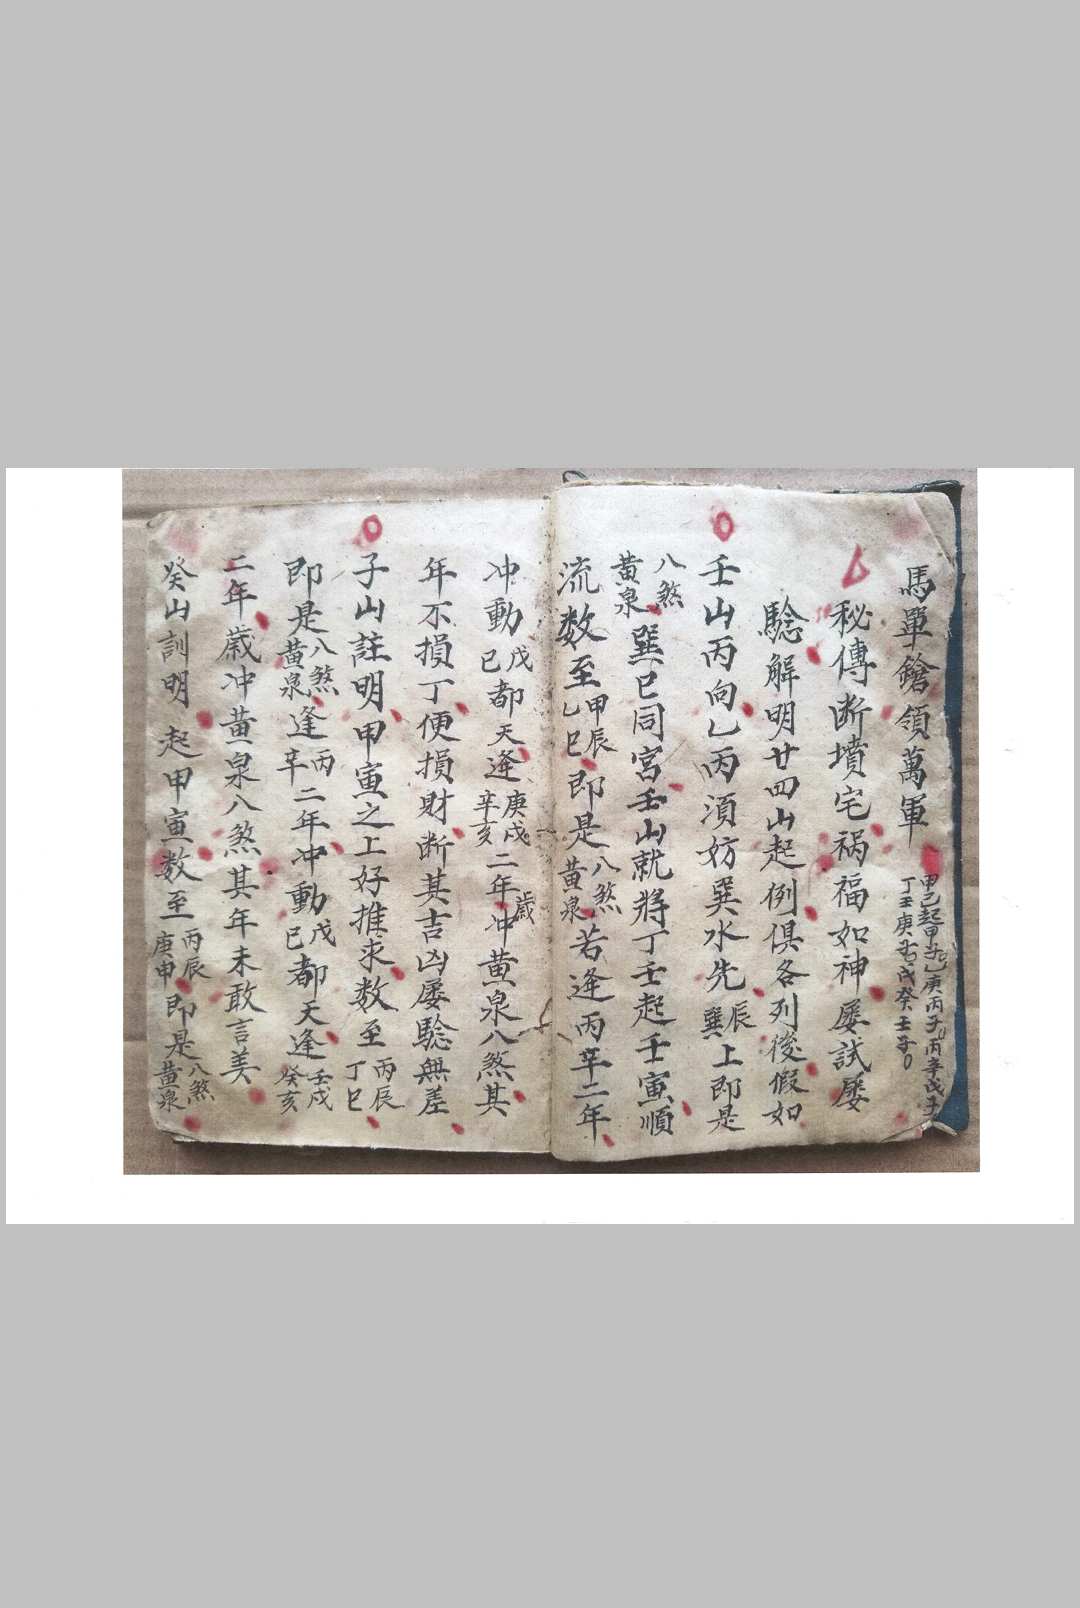 馬單鎗領萬軍
甲己起甲子乙庚丙子丙辛戊子
丁壬庚子戊癸壬子
秘傳断墳宅祸福如神屡試屡
騐解明廿四山起例俱各列後假如
壬山丙向乙丙須妨巽水先辰巽上即是
八煞黄泉巽巳同宮壬山就将丁壬起壬寅順
流数至甲辰乙巳即是八煞黄泉若逢丙辛二年
冲動戊己都天逢庚戌辛亥二年歲冲黄泉八煞其
年不損丁便損財断其吉凶屡騐無差
子山註明甲寅之上好推求数至丙辰丁巳
即是八煞黄泉逢丙辛二年冲動戊己都天逢壬戌癸亥
二年歲冲黄泉八煞其年未敢言美
癸山訓明起甲寅数至丙辰庚申即是八煞黄泉